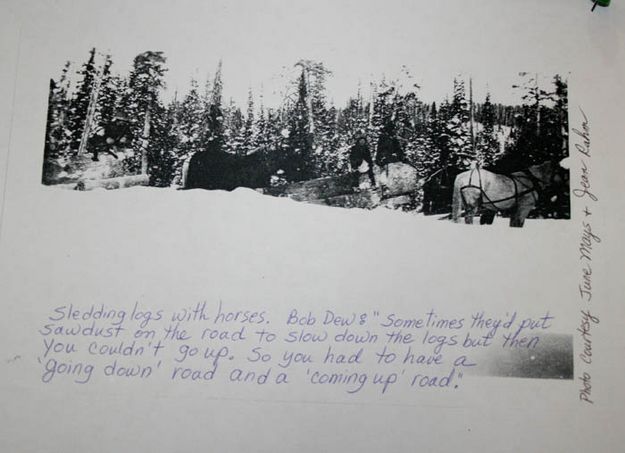 Sledding logs with horses. Bob Dew: "Sometimes they'd put
sawdust on the road to slow down the logs but then
you couldn't go up. So you had to have a
'going down' road and a 'coming up' road."
Photo Courtesy June Mays + Jean